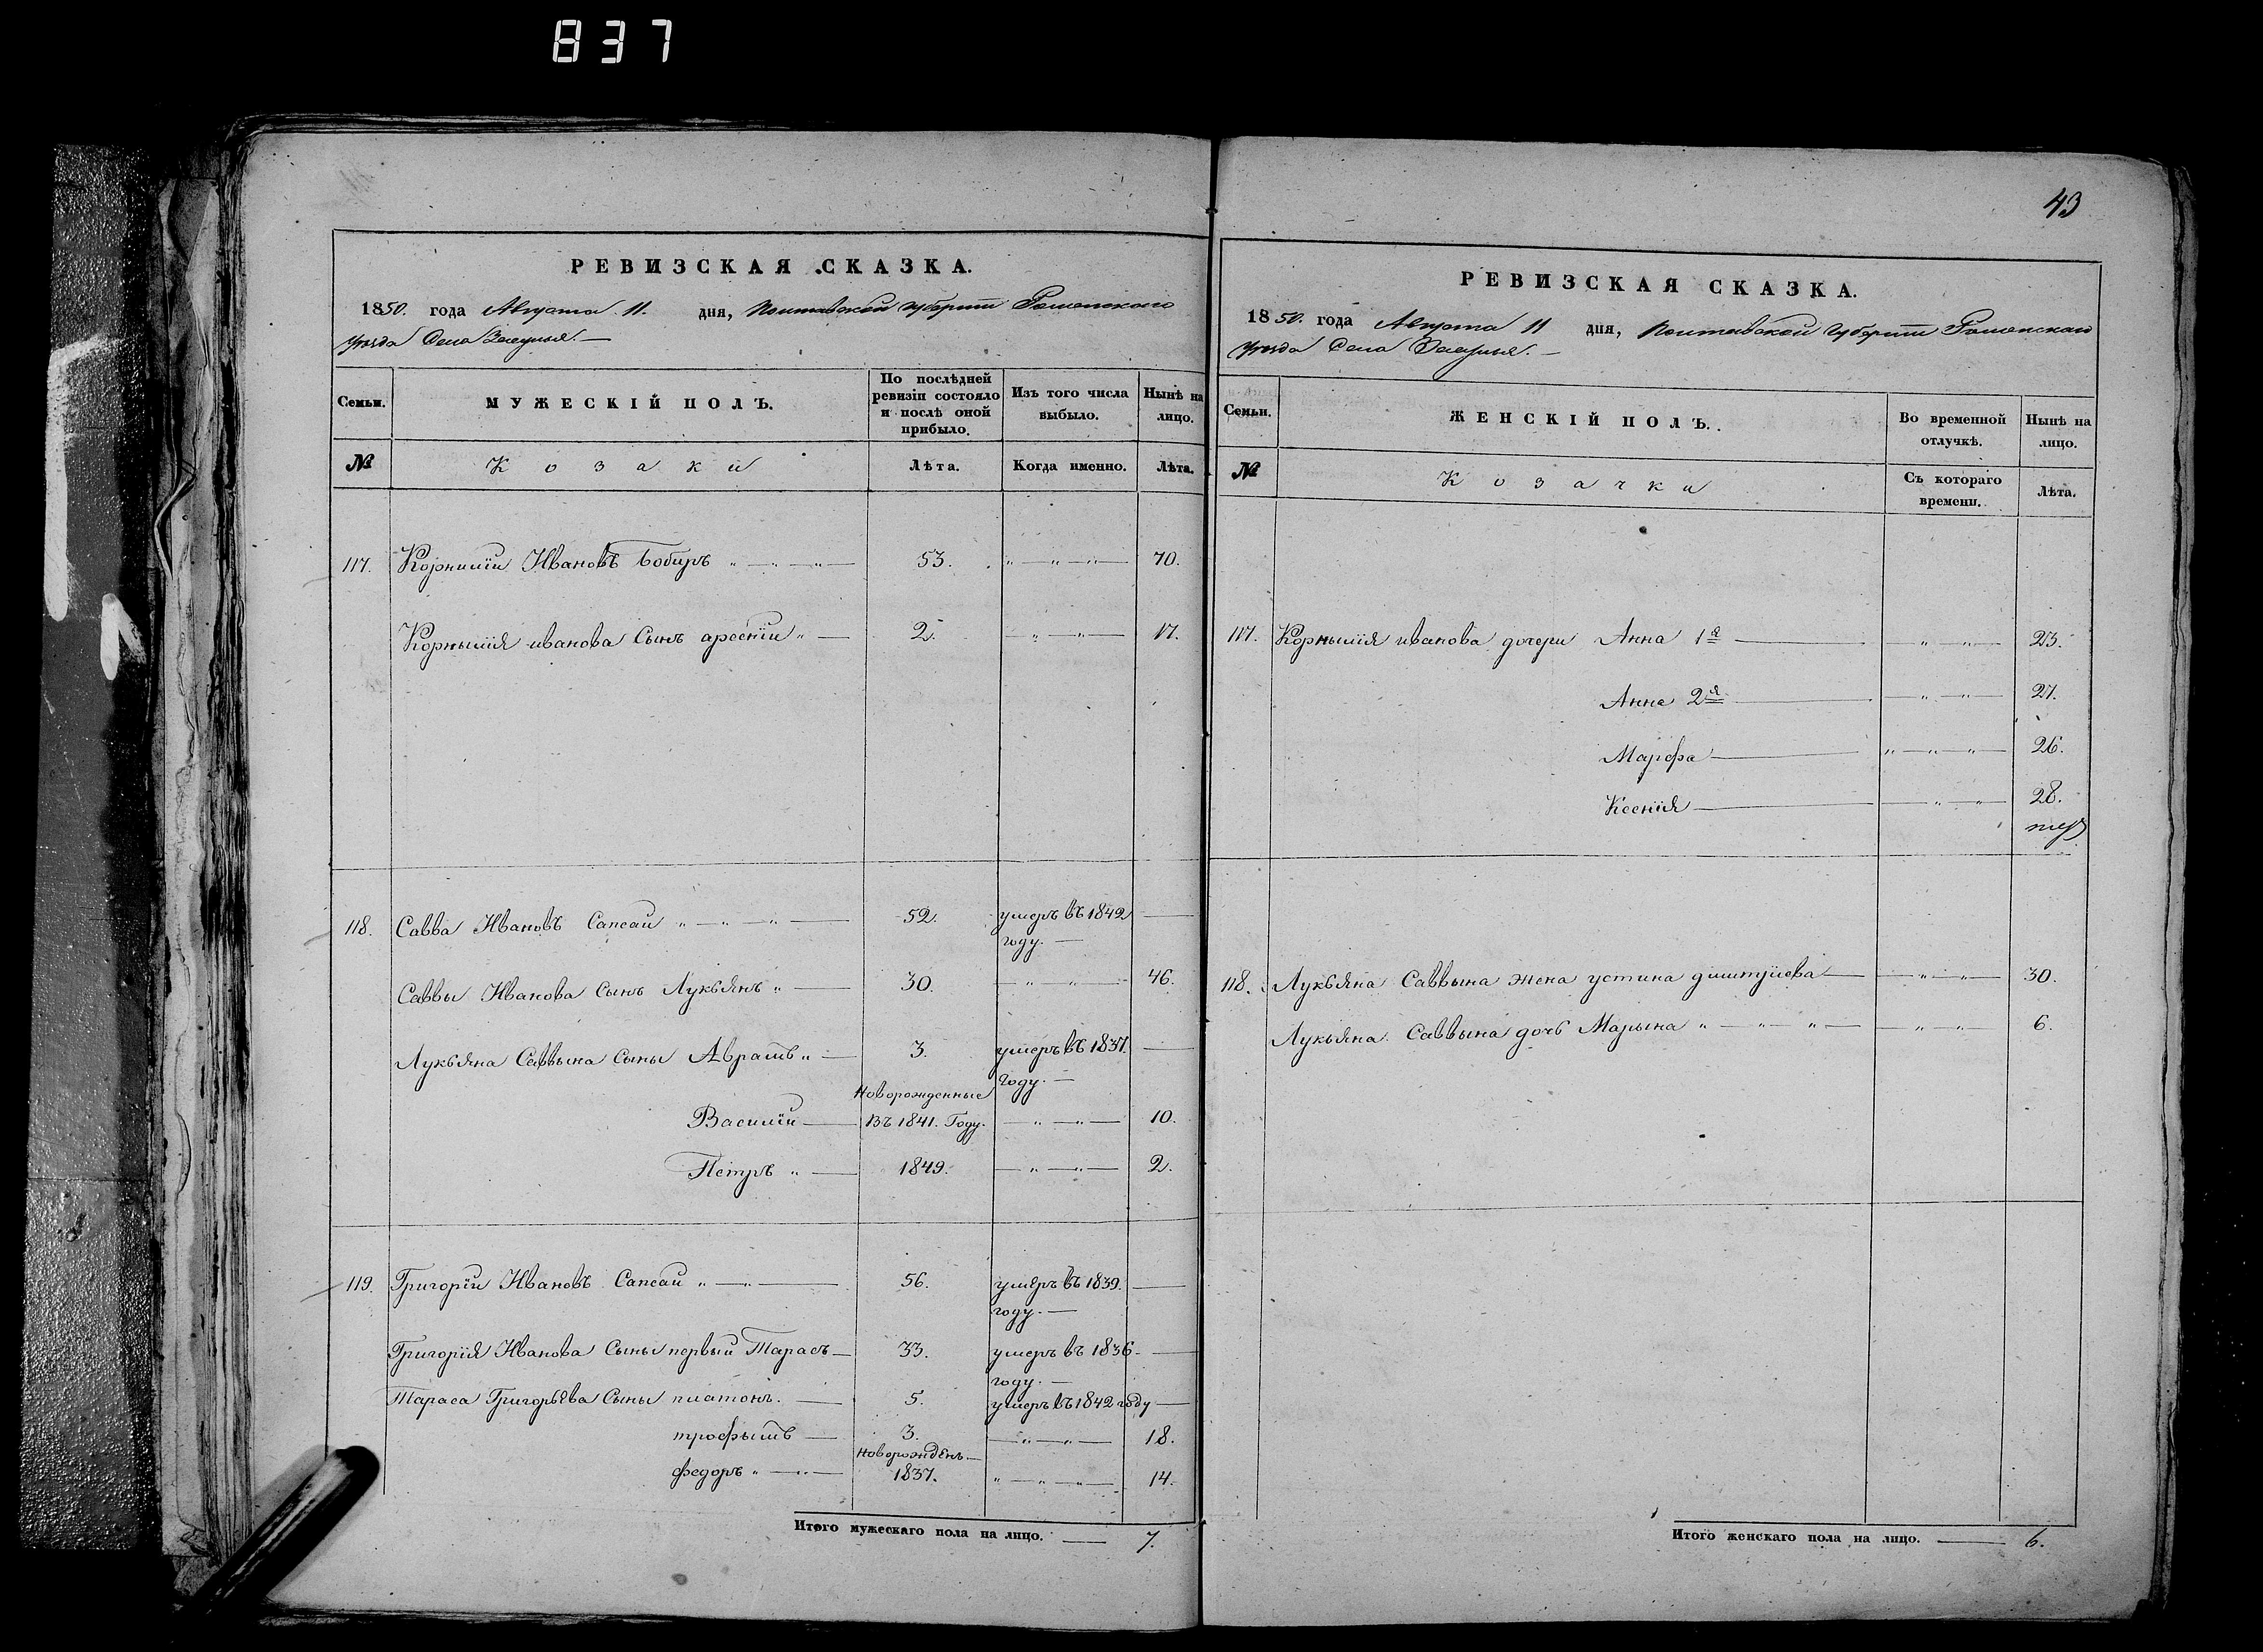 837
РЕВИЗСКАЯ СКАЗКА.
1850. года Августа 11. дня, Полтавской Губерніи Роменскаго
уезда Села
Семьи. МУЖЕСКІЙ ПОЛЪ. По послѣдней ревизіи состояло и послѣ оной прибыло. Изъ того числа выбыло. Нынѣ на лицо.
№ Козаки Лѣта. Когда именно. Лѣта.
117. Корнилій Ивановъ Бобирь 53. 70.
Корнылія иванова Сынъ арсеній 2. 17.
118. Савва Ивановъ Сапсай 52. умеръ въ 1842
году.
Саввы Иванова Сынъ Лукьянъ 30. 46.
Лукьяна Саввына Сыны Аврамъ 3. умеръ въ 1837.
году.
Новорожденные
Василій въ 1841. Году. 10.
Петръ 1849. 2.
119. Григорій Ивановъ Сапсай 56. умеръ въ 1839.
году.
Григорія Иванова Сыны первый Тарасъ 33. умеръ въ 1836
году.
Тараса Григорьева Сыны платонъ. 5. умеръ въ 1842 году
трофымъ 3. 18.
Новорожденъ
федоръ 1837. 14.
Итого мужескаго пола на лицо. 7.
43
РЕВИЗСКАЯ СКАЗКА.
1850. года Августа 11 дня, Полтавской Губерніи Роменскаго
уезда Села
Семьи. ЖЕНСКІЙ ПОЛЪ. Во временной отлучкѣ. Нынѣ на лицо.
№ Козачки Съ котораго времени. Лѣта.
117. Корнылія иванова дочери Анна 1я 23.
Анна 2я 27.
Марфа 26.
Ксенія 28.
118. Лукьяна Саввына жена устина 30.
Лукьяна Саввына дочь Марына 6.
Итого женскаго пола на лицо. 6.